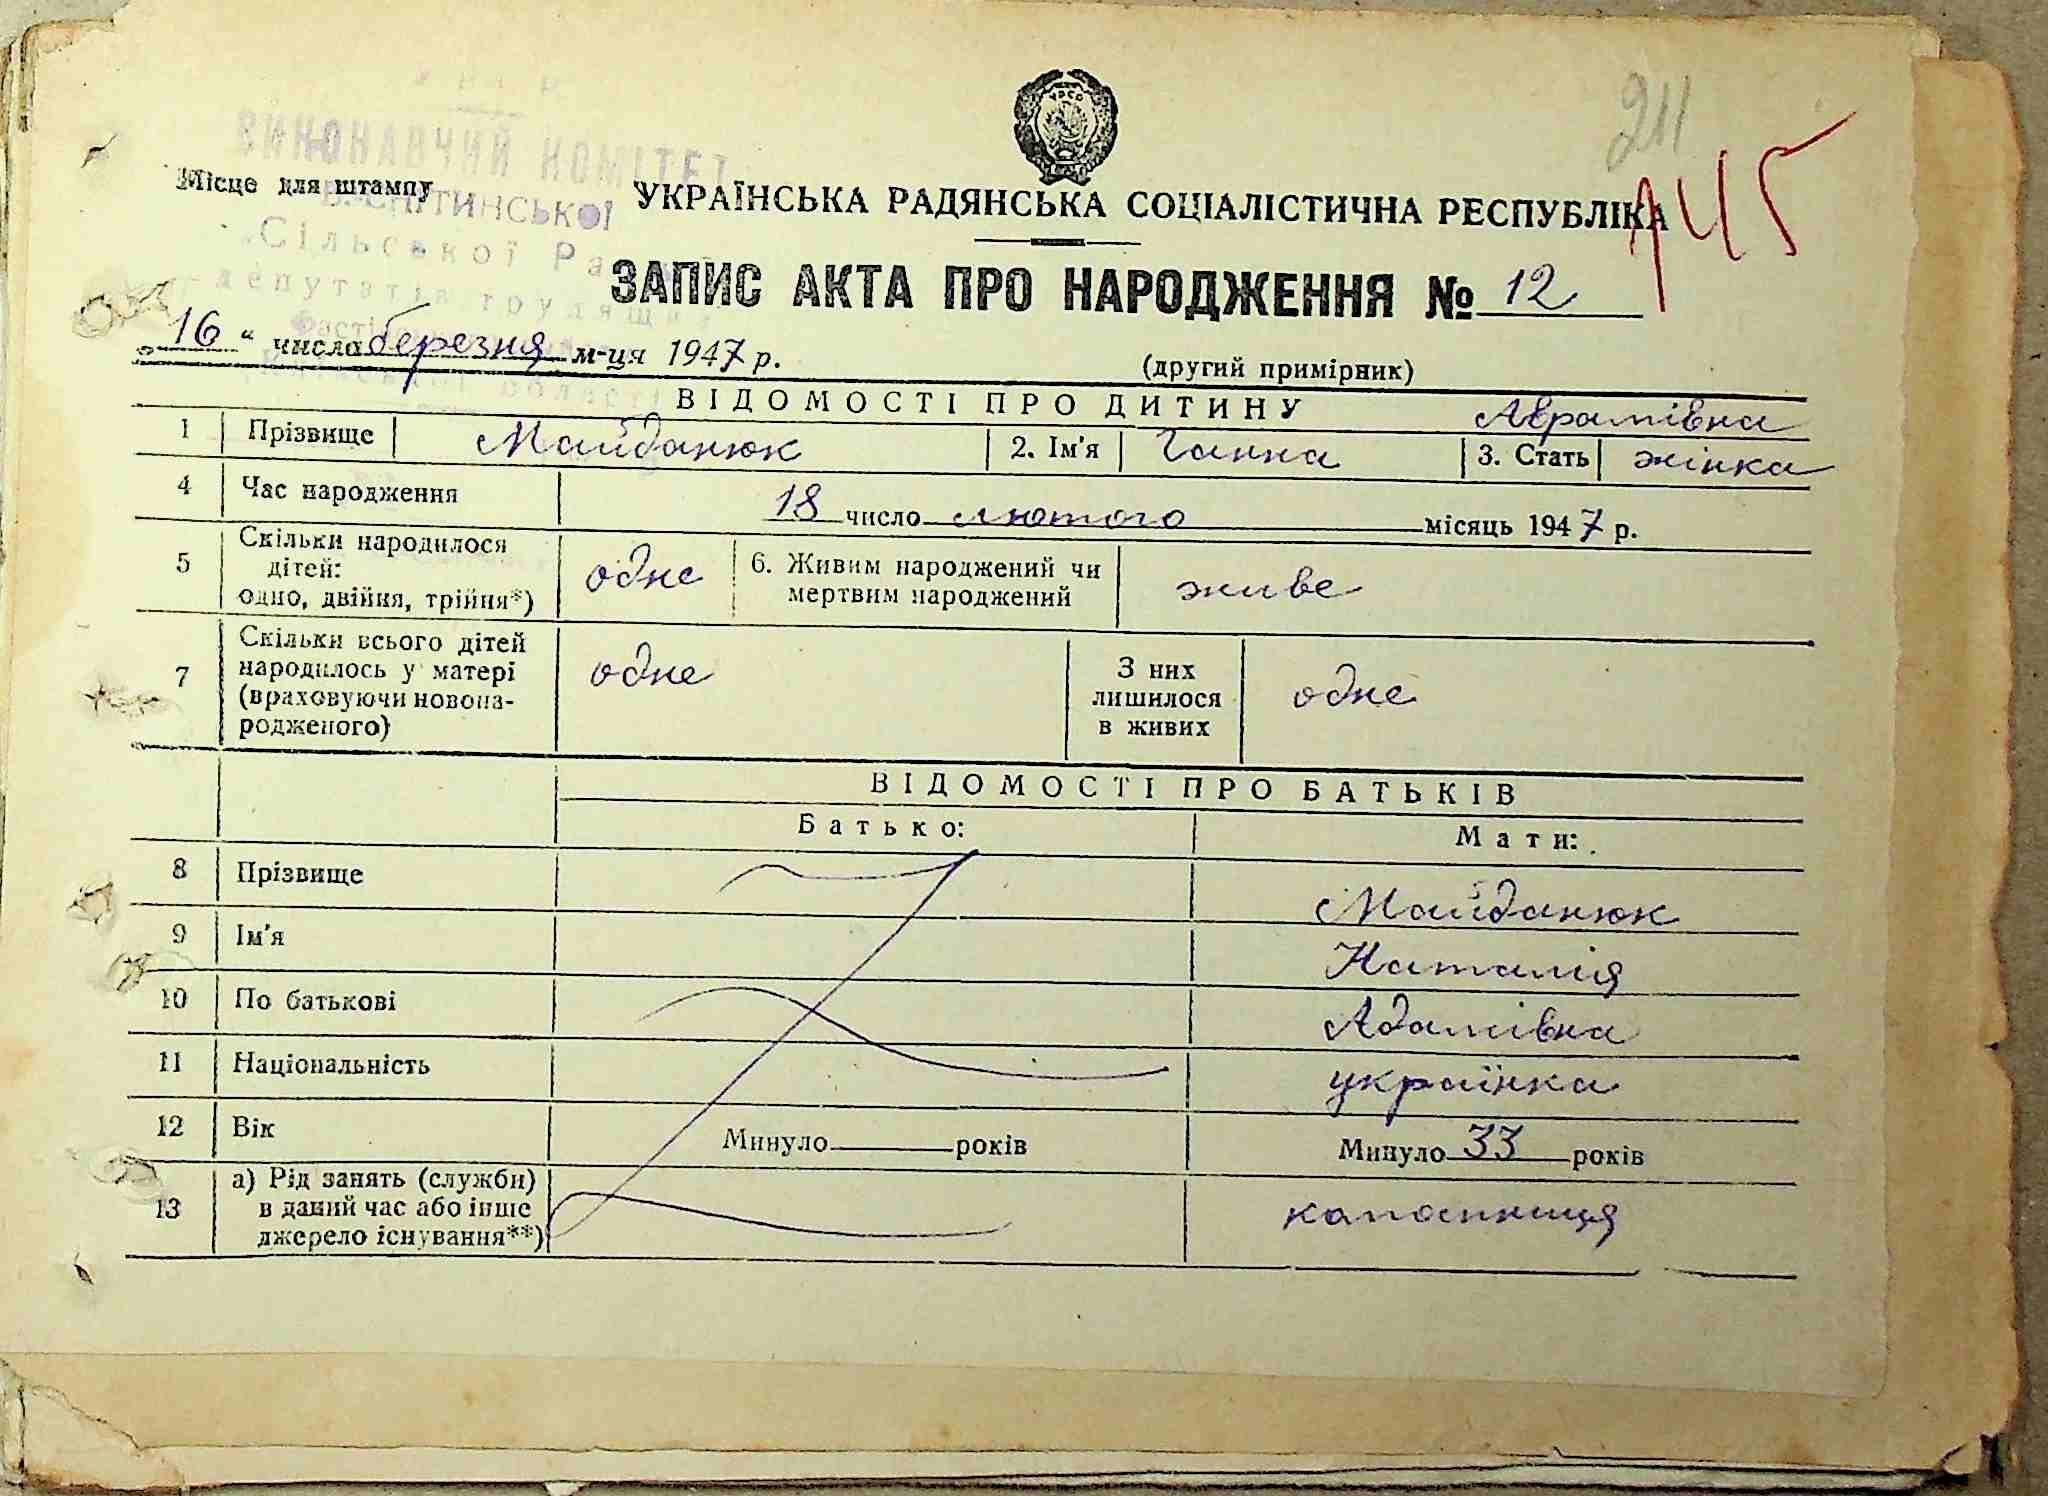 211
145
ВИКОНАВЧИЙ КОМІТЕТ
Місце для штампу
В.-СНІТИНСЬКОЇ
УКРАЇНСЬКА РАДЯНСЬКА СОЦІАЛІСТИЧНА РЕСПУБЛІКА
Сільської Ради
депутатів трудящих
ЗАПИС АКТА ПРО НАРОДЖЕННЯ № 12
„16“ числа березня м-ця 1947 р.
(другий примірник)
області
ВІДОМОСТІ ПРО ДИТИНУ
Аврамівна
1 Прізвище Майданюк 2. Ім'я Ганна 3. Стать жінка
4 Час народження 18 число лютого місяць 1947 р.
5 Скільки народилося дітей: одно, двійня, трійня*) одне 6. Живим народжений чи мертвим народжений живе
7 Скільки всього дітей народилось у матері (враховуючи новонародженого) одне З них лишилося в живих одне
ВІДОМОСТІ ПРО БАТЬКІВ
Батько: Мати:
8 Прізвище Майданюк
9 Ім'я Наталія
10 По батькові Адамівна
11 Національність українка
12 Вік Минуло років Минуло 33 років
13 а) Рід занять (служби) в даний час або інше джерело існування**)